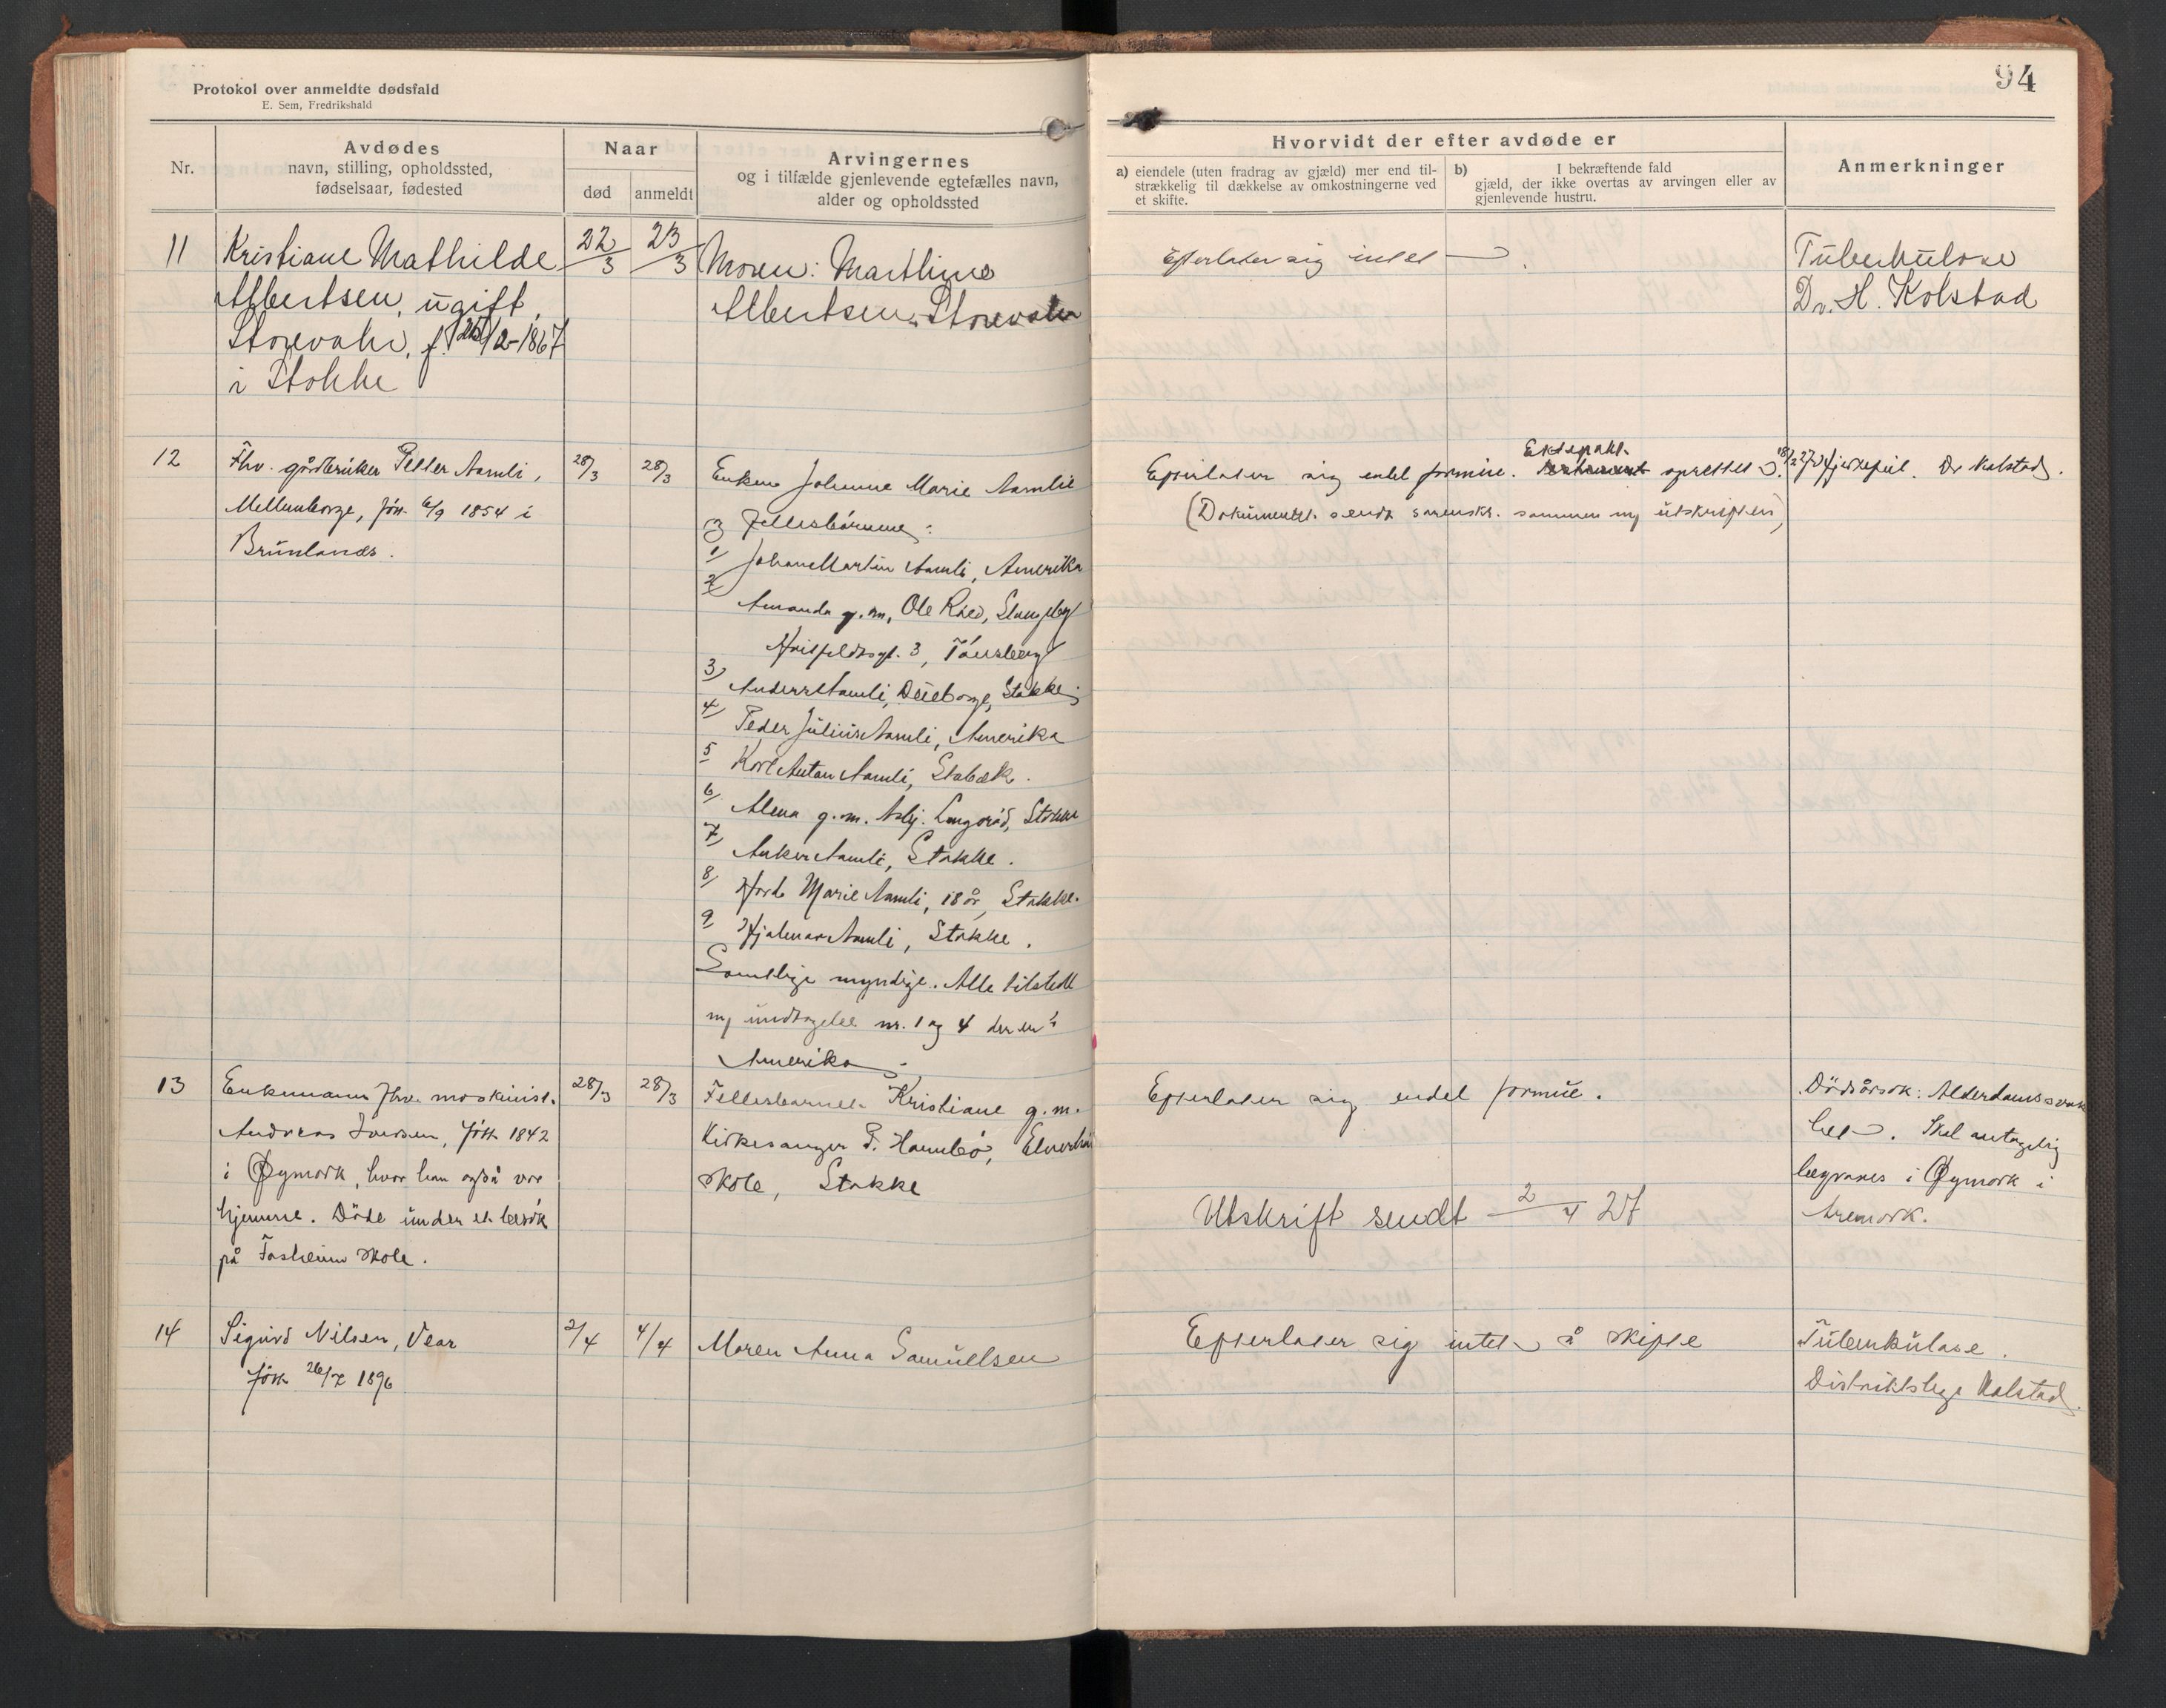 Protokol over anmeldte dødsfald
E. Sem, Fredrikshald
Nr.
Avdødes
navn, stilling, opholdssted,
fødselsaar, fødested
Naar
død
anmeldt
Arvingernes
og i tilfælde gjenlevende egtefælles navn,
alder og opholdssted
94
Hvorvidt der efter avdøde er
a) eiendele (uten fradrag av gjæld) mer end til-
strækkelig til dækkelse av omkostningerne ved
et skifte.
b) I bekræftende fald
gjæld, der ikke overtas av arvingen eller av
gjenlevende hustru.
Anmerkninger
11
Kristiane Mathilde
Albertsen, ugift,
Storevahr, f. 26/2-1867
i Stokke
22/3
23/3
Moren: Marthine
Albertsen, Storevahr
Efterlater sig intet
Tuberkulose
Dr. H. Kolstad
12
Fhv. gårdbruker Petter Aamli,
Mellumborge, født 6/9 1854 i
Brunlanes.
28/3
28/3
Enken Johanne Marie Aamli
9 Fellesbørn:
1/ Johan Martin Aamli, Amerika
2/ Amanda g.m. Ole Råed, Slagsby
3, Tønsberg
3/ Anders Aamli, Borge, Stokke
4/ Peder Julius Aamli, Amerika
5 Karl Anton Aamli, Stabæk.
6/ Alena g.m. Asbj. Langrød, Stokke
7/ Anker Aamli, Stokke.
8/ Marie Aamli, 18 år, Stokke.
9 Hjalmar Aamli, Stokke.
Samtlige myndige. Alle tilstede
m/ undtagelse nr. 1 og 4 der er i
Amerika
Ektepakt
Efterlater sig endel formue. oprettet 18/2 27. Hjertefeil. Dr Kolstad.
(Dokumentet sendt sorenskr. sammen m/ utskriften)
13
Enkemann fhv. maskinist.
Andreas Iversen, født 1842
i Øymark, hvor han også var
hjemme. Døde under et besøk
på Fossheim skole.
28/3
28/3
Fellesbarnet Kristiane g.m.
Kirkesanger P. Hambro,
skole, Stokke
Efterlater sig endel formue.
Utskrift sendt 2/4 27
Dødsårsak: Alderdomssvak
het. Skal antagelig
begraves i Øymark i
Aremark.
14
Sigurd Nilsen, Vear
født 26/7 1896
2/4
4/4
Moren Anna Samuelsen
Efterlater sig intet å skifte
Tuberkulose.
Distriktslege Kolstad.